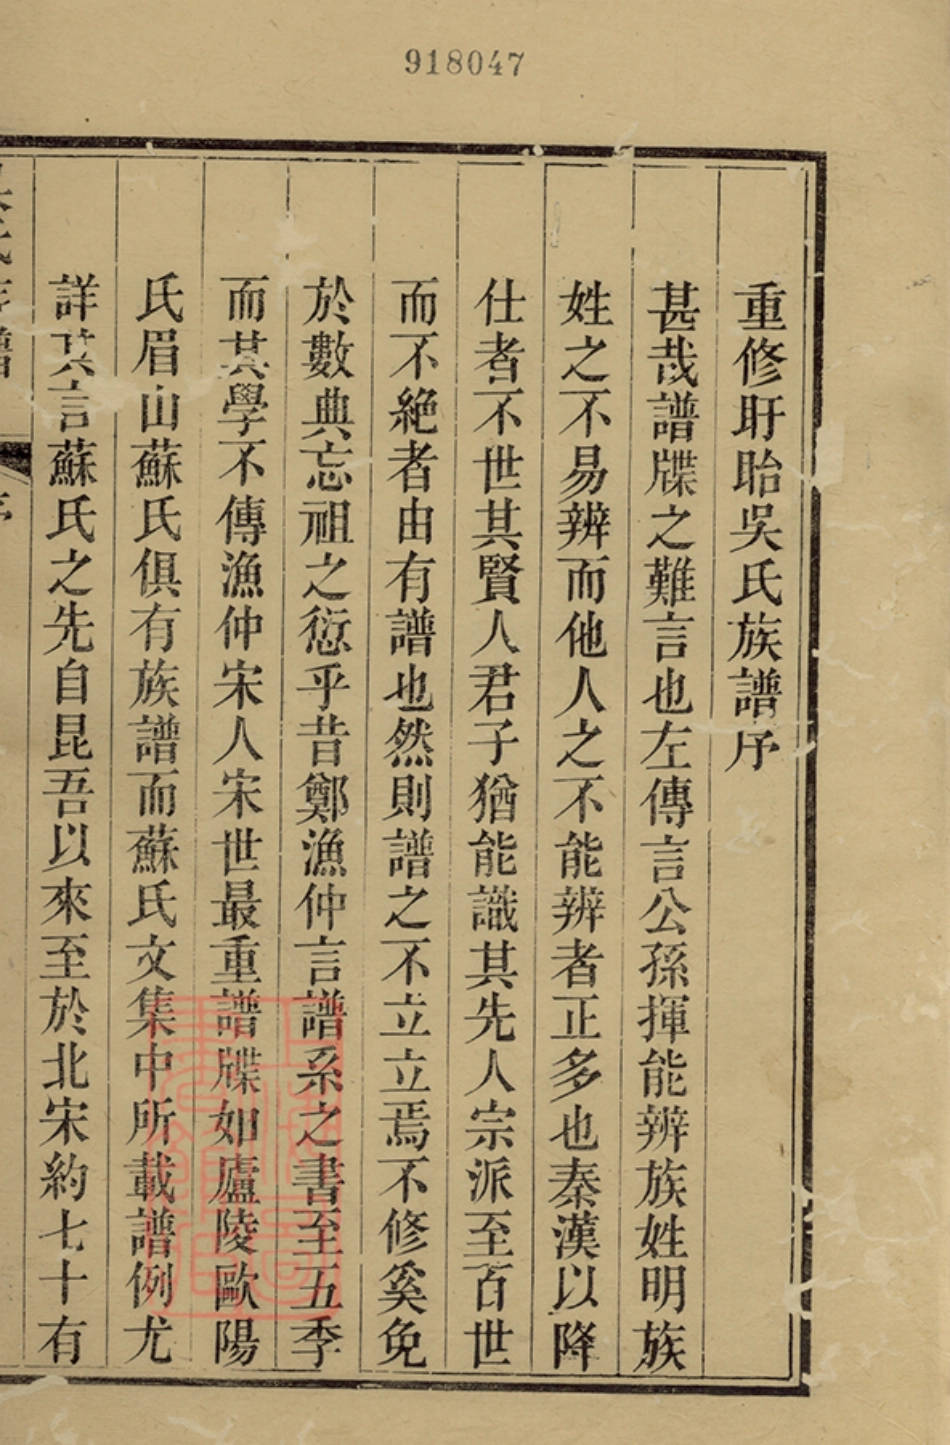 918047
重修盱眙吳氏族譜序
甚哉譜牒之難言也左傳言公孫揮能辨族姓明族
姓之不易辨而他人之不能辨者正多也秦漢以降
仕者不世其賢人君子猶能識其先人宗派至百世
而不絕者由有譜也然則譜之不立立焉不修奚免
於數典忘祖之愆乎昔鄭漁仲言譜系之書至五季
而其學不傳漁仲宋人宋世最重譜牒如廬陵歐陽
氏眉山蘇氏俱有族譜而蘇氏文集中所載譜例尤
詳其言蘇氏之先自昆吾以來至於北宋約七十有